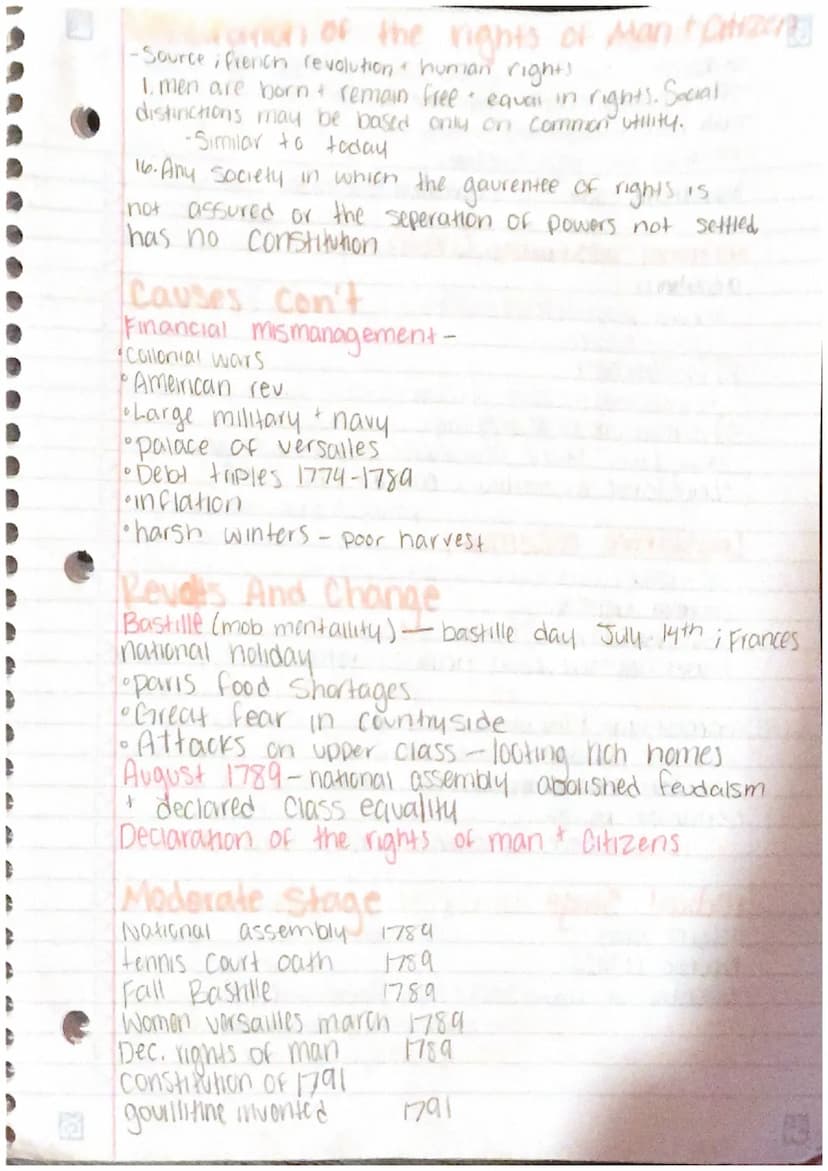 of the rights of Man + Citizen
- Source ; french revolution + human rights
1. men are born + remain free + equal in rights. Social
distinctions may be based only on common utility.
- Similar to today
16. Any society in which the gaurentee of rights is
not assured or the seperation of powers not settled
has no constitution
Causes con't
Financial mismanagement -
• Collonial wars
• American rev.
• Large military + navy
• palace of versalles
• Debt triples 1774-1789
• inflation
• harsh winters - poor harvest
Revolts And Change
Bastille (mob mentallity) — bastille day July 14th ; Frances
national holiday
• paris food shortages
• Great fear in countryside
• Attacks on upper class - looting rich homes
August 1789 - national assembly abolished feudalsm
+ declared class equality
Declaration of the rights of man + Citizens
Moderate Stage
National assembly 1789
tennis court oath 1789
Fall Bastille 1789
Women versailles march 1789
Dec. rights of man 1789
constitution of 1791
gouillitine invented 1791